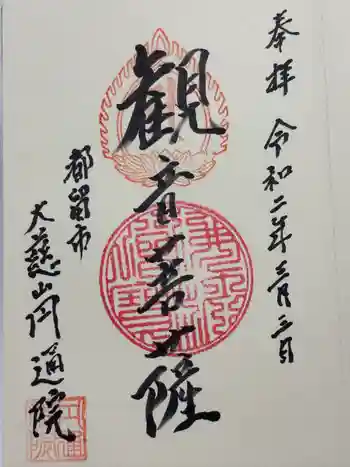 奉拝 令和二年三月二日
観音菩薩
都留市
大慈山円通院